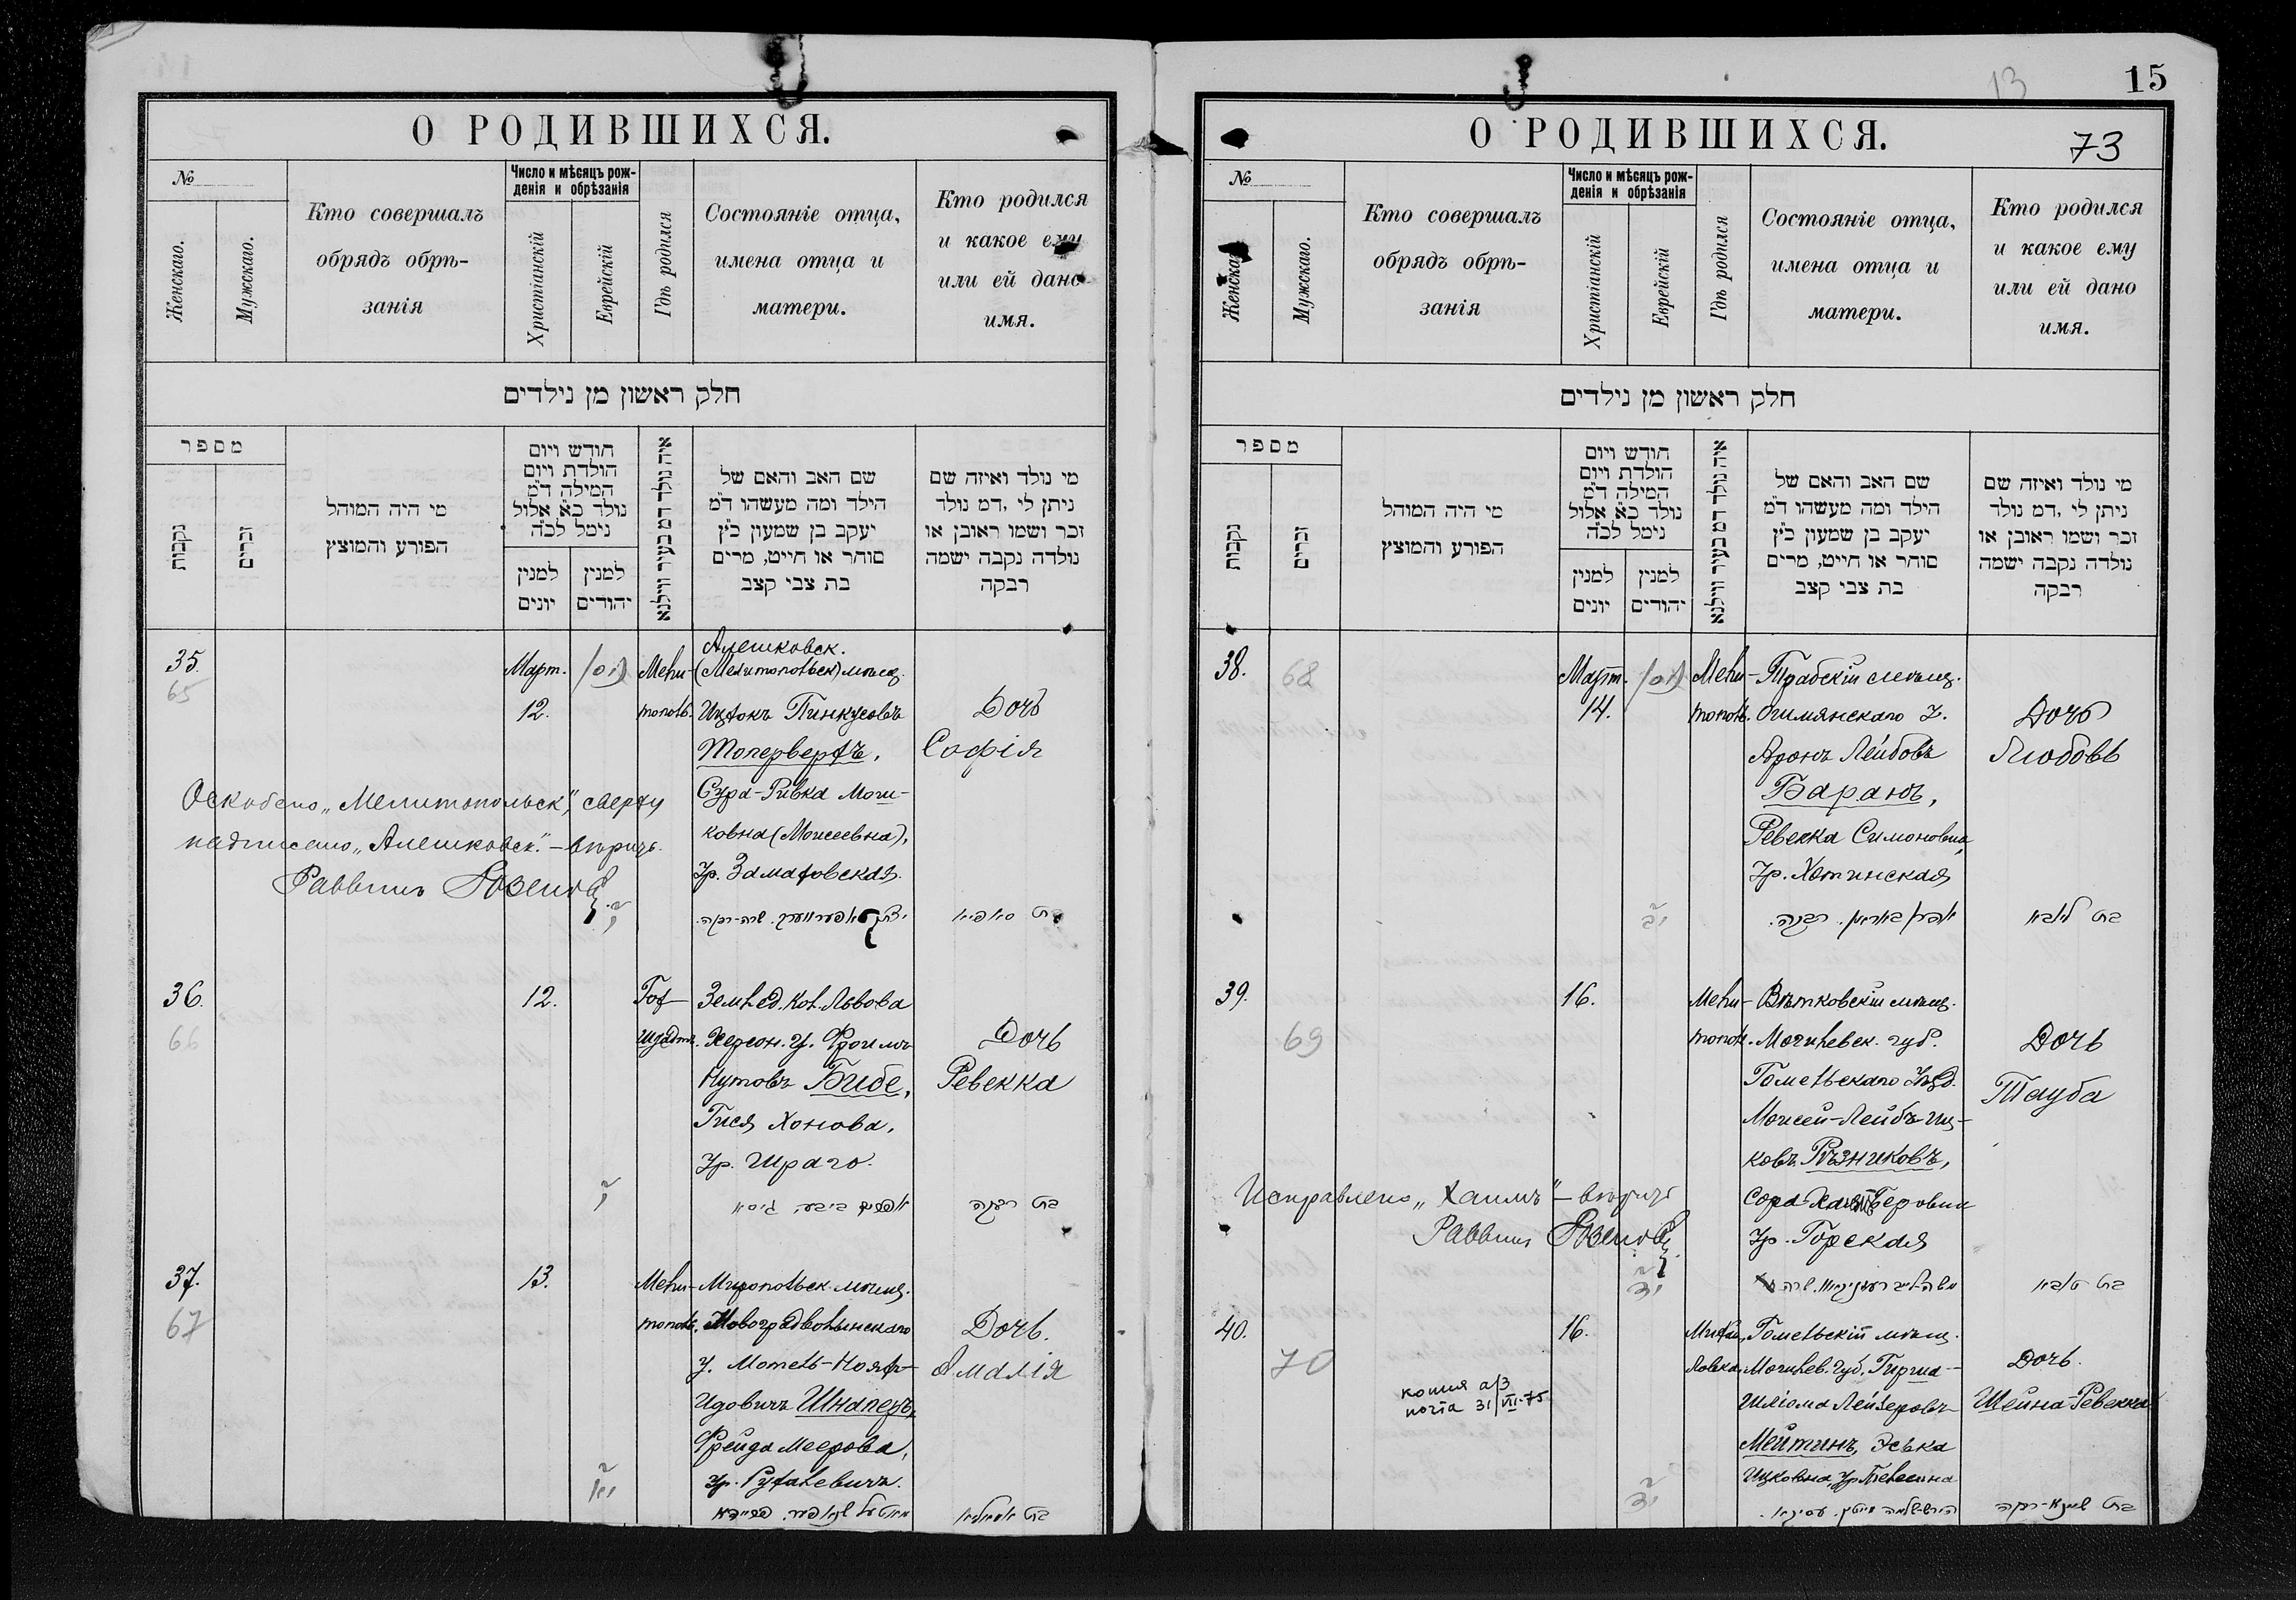 О РОДИВШИХСЯ.
№
Женскаго.
Мужскаго.
Кто совершалъ
обрядъ обрѣ-
занія
Число и мѣсяцъ рож-
денія и обрѣзанія
Христіанскій
Еврейскій
Гдѣ родился
Состояніе отца,
имена отца и
матери.
Кто родился
и какое ему
или ей дано
имя.
חלק ראשון מן נילדים
מספר
נקבות
זכרים
מי היה המוהל
הפורע והמוצץ
חודש ויום
הולדת ויום
המילה ד"מ
נולד כ"א אלול
נימל לכ"ה
למנין
יונים
למנין
יהודים
איה נולד דמ בעיר ווילנא
שם האב והאם של
הילד ומה מעשהו ד"מ
יעקב בן שמעון כ"ץ
סוחר או חייט, מרים
בת צבי קצב
מי נולד ואיזה שם
ניתן לי ,דמ נולד
זכר ושמו ראובן או
נולדה נקבה ישמה
רבקה
35.
65
Март.
12.
Мели-
тополь.
Алешковск.
(Мелитопольск) мѣщ.
Ицхокъ Пинкусовъ
Топерверхъ,
Сура-Ривка Мош-
ковна (Моисеевна),
ур. Замаховская.
Дочь
Софія
Оскоблено „Мелитопольск“, сверху
надписано „Алешковск.“ – вѣрно.
Раввинъ
בת סאפיא
36.
66
12.
Земвлед. кол. Львова
Херсон. у. Фроимъ
Нутовъ Бибе,
Гися Хонова,
ур. Шраго.
Дочь
Ревекка
בת רבקה
37.
67
13.
Мели-
тополь.
Миропольск. мѣщ.
Новоградволынскаго
у. Мотель-Нояхъ
Идовичъ Шнаперъ,
Фрейда Меерова,
ур. Рухалевичъ.
Дочь.
Амалія
בת אמאליא
15
13
О РОДИВШИХСЯ.
73
№
Женскаго.
Мужскаго.
Кто совершалъ
обрядъ обрѣ-
занія
Число и мѣсяцъ рож-
денія и обрѣзанія
Христіанскій
Еврейскій
Гдѣ родился
Состояніе отца,
имена отца и
матери.
Кто родился
и какое ему
или ей дано
имя.
חלק ראשון מן נילדים
מספר
נקבות
זכרים
מי היה המוהל
הפורע והמוצץ
חודש ויום
הולדת ויום
המילה ד"מ
נולד כ"א אלול
נימל לכ"ה
למנין
יונים
למנין
יהודים
איה נולד דמ בעיר ווילנא
שם האב והאם של
הילד ומה מעשהו ד"מ
יעקב בן שמעון כ"ץ
סוחר או חייט, מרים
בת צבי קצב
מי נולד ואיזה שם
ניתן לי ,דמ נולד
זכר ושמו ראובן או
נולדה נקבה ישמה
רבקה
38.
68
Март.
14.
Мели-
тополь.
Трабскій мѣщ.
Ошмянскаго у.
Аронъ Лейбовъ
Баранъ,
Ревекка Симоновна,
ур. Хотинская
Дочь
Любовь
בת ליבא
39.
69
16.
Мели-
тополь.
Вѣтковскій мѣщ.
Могилевск. губ.
Гомельскаго уѣзд.
Моисей-Лейбъ Иц-
ковъ Рѣзниковъ,
Сора Хаимъ-Беровна
ур. Горская
Дочь
Тауба
Исправлено „Хаимъ“ – вѣрно
Раввинъ
בת טובא
40.
70
16.
Михай-
ловка.
Гомельскій мѣщ.
Могилев. губ. Гирша-
Шліома Лейзеровъ
Мейтинъ, Эська
Ицковна,
Дочь.
Шейна-Ревекка
копия а/з
почта 31/VII-75
בת שיינא-רבקה